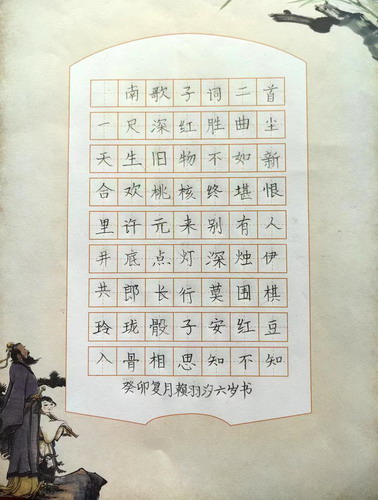 南歌子词二首
一尺深红胜曲尘
天生旧物不如新
合欢桃核终堪恨
里许元来别有人
井底点灯深烛伊
共郎长行莫围棋
玲珑骰子安红豆
入骨相思知不知
癸卯复月赖羽汐六岁书